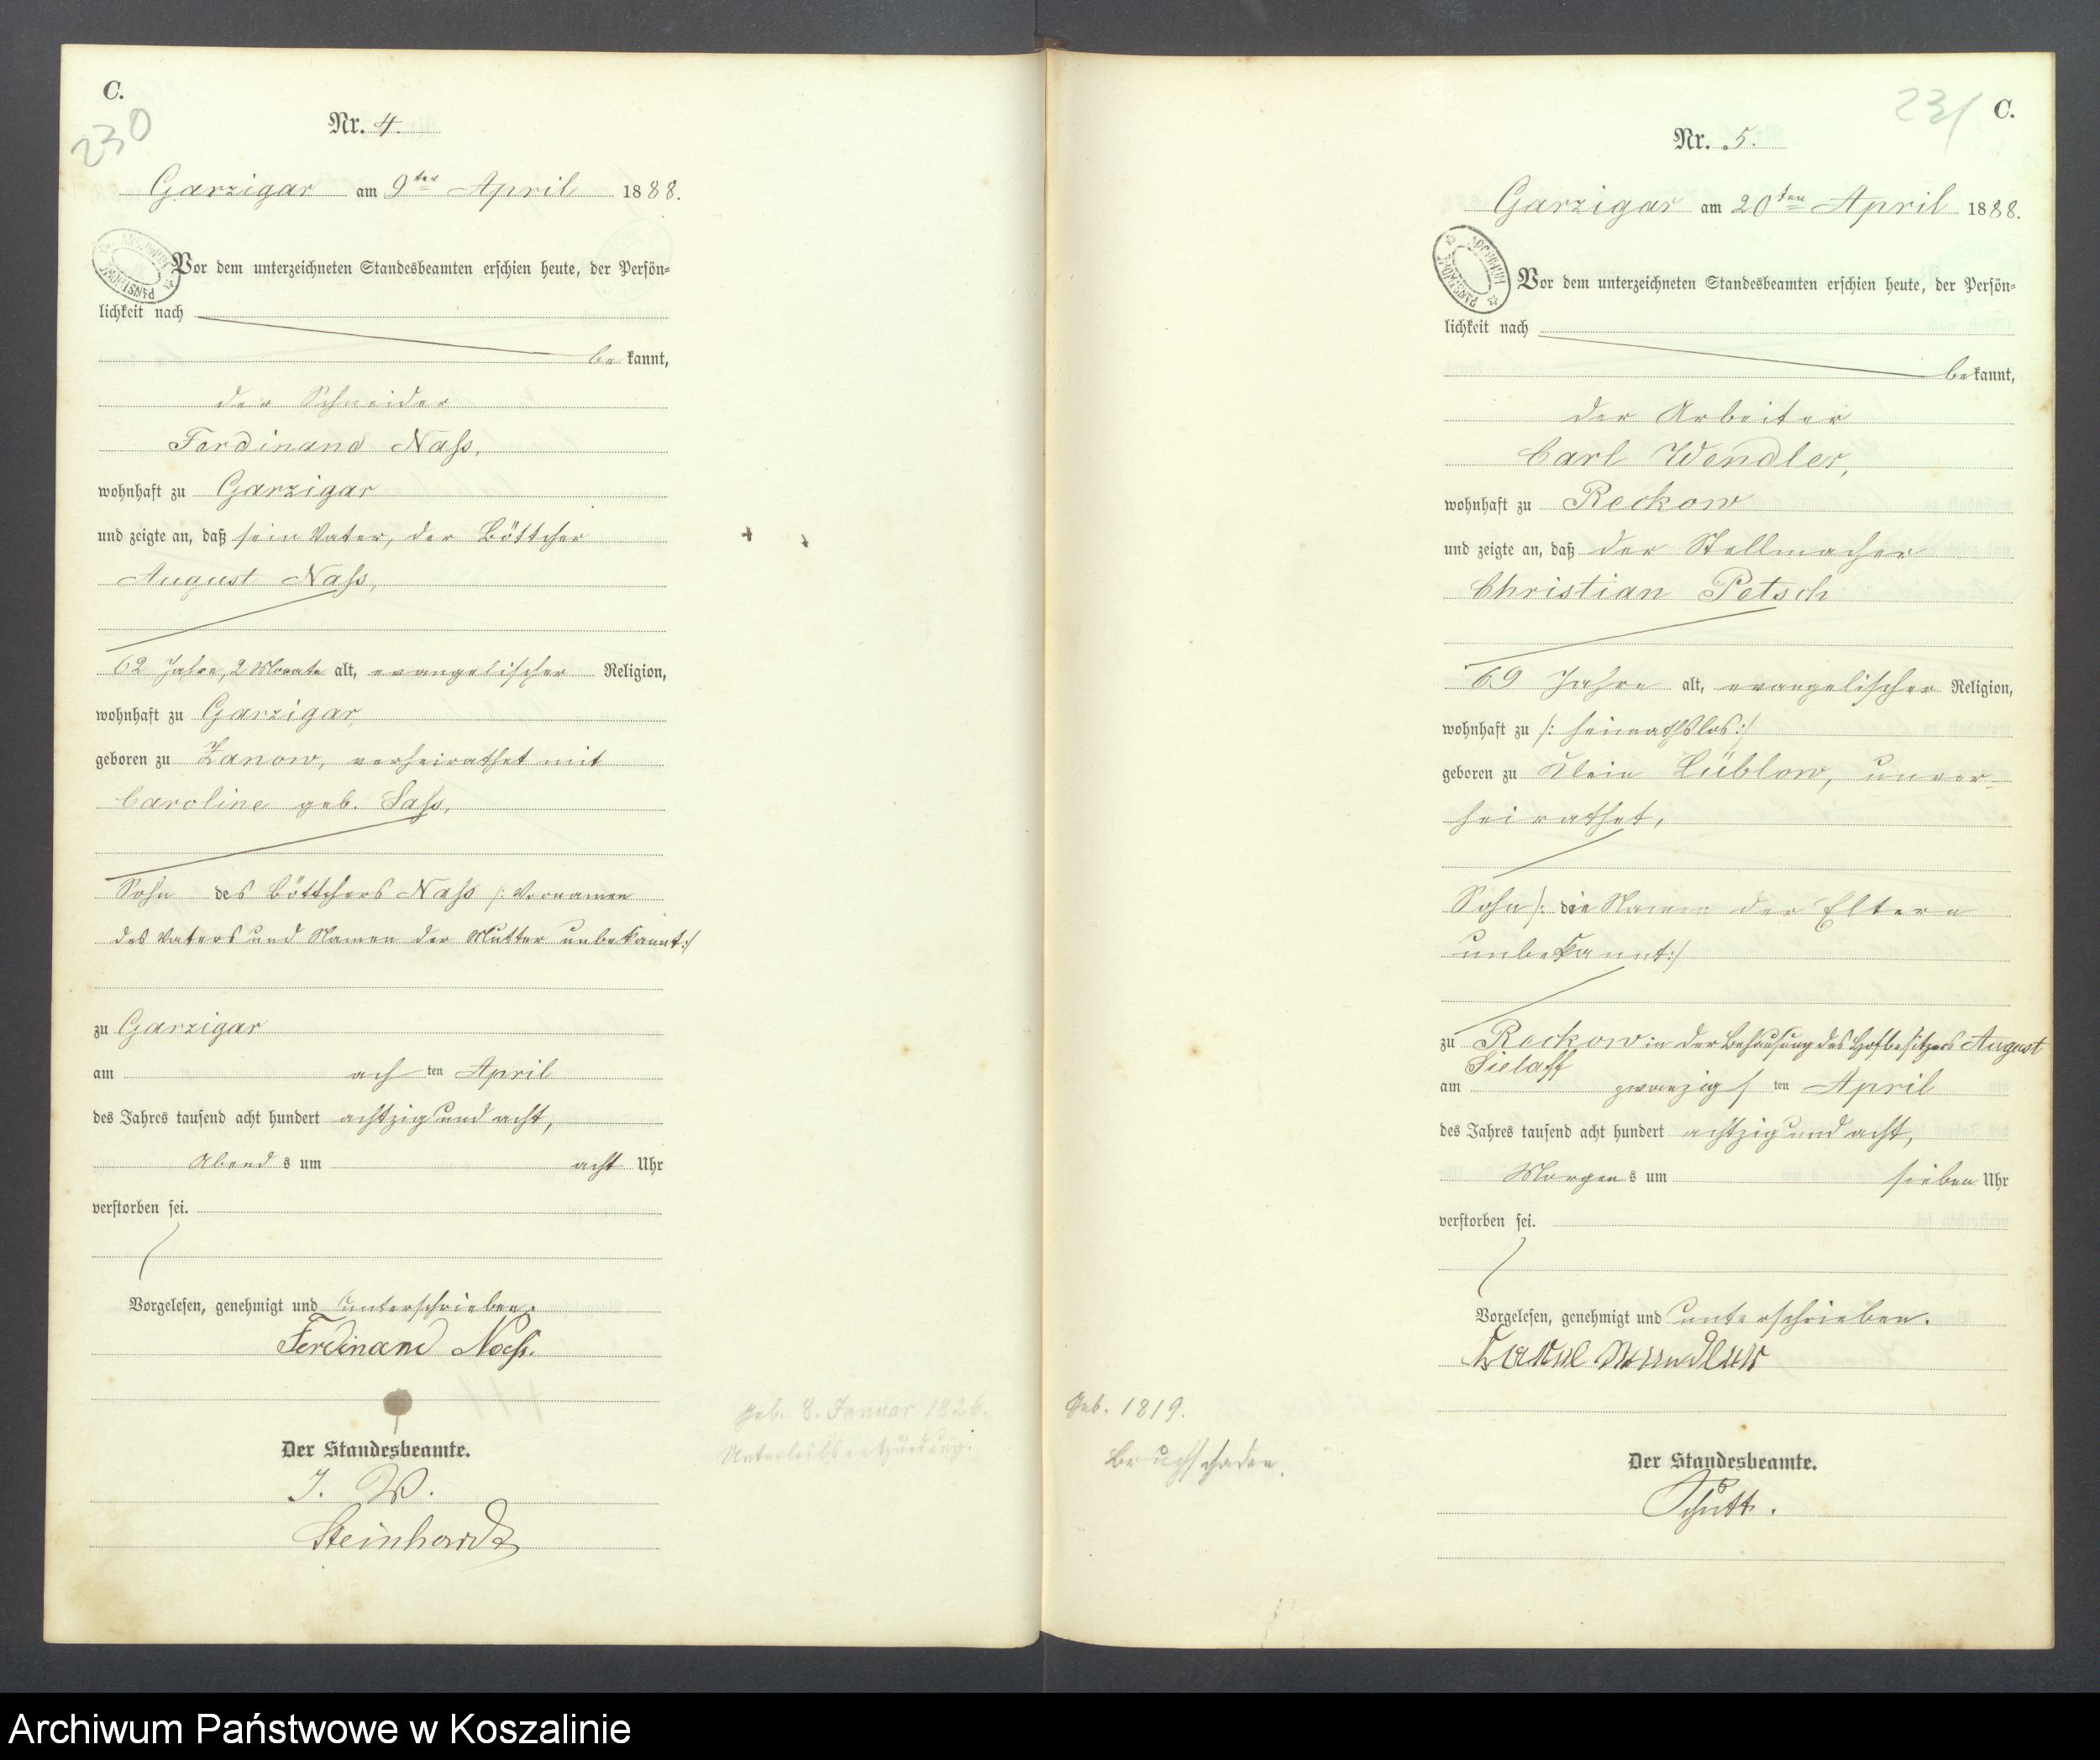 C.
230
Nr. 4.
Garzigar am 9ten April 1888.
Vor dem unterzeichneten Standesbeamten erschien heute, der Persön-
lichkeit nach
be kannt,
der Schneider
Ferdinand Nass,
wohnhaft zu Garzigar
und zeigte an, daß sein Vater, der Böttcher
August Nass,
62 Jahre, 2 Monate alt, evangelischer Religion,
wohnhaft zu Garzigar,
geboren zu Zanow, verheirathet mit
Caroline geb. Sass,
Sohn des Böttchers Nass /: Vornamen
des Vaters und Namen der Mutter unbekannt :/
zu Garzigar
am ach ten April
des Jahres tausend acht hundert achtzig und acht,
Abend s um acht Uhr
verstorben sei.
Vorgelesen, genehmigt und unterschrieben.
Ferdinand Nass.
Der Standesbeamte.
J. V.
Steinhardt
geb. 8. Januar 1826.
Unterleibsentzündung.
231
C.
Nr. 5.
Garzigar am 20ten April 1888.
Vor dem unterzeichneten Standesbeamten erschien heute, der Persön-
lichkeit nach
be kannt,
der Arbeiter
Carl Wendler,
wohnhaft zu Reckow
und zeigte an, daß der Stellmacher
Christian Petsch
69 Jahre alt, evangelischer Religion,
wohnhaft zu /: heimathslos :/
geboren zu Klein Lüblow, unver-
heirathet,
Sohn /: die Namen der Eltern
unbekannt :/
zu Reckow in der Behausung des Hofbesitzers August
Sielaff
am zwanzigs ten April
des Jahres tausend acht hundert achtzig und acht,
Morgen s um sieben Uhr
verstorben sei.
Vorgelesen, genehmigt und unterschrieben.
Geb. 1819.
Bruchschaden.
Der Standesbeamte.
Schütt.
Archiwum Państwowe w Koszalinie